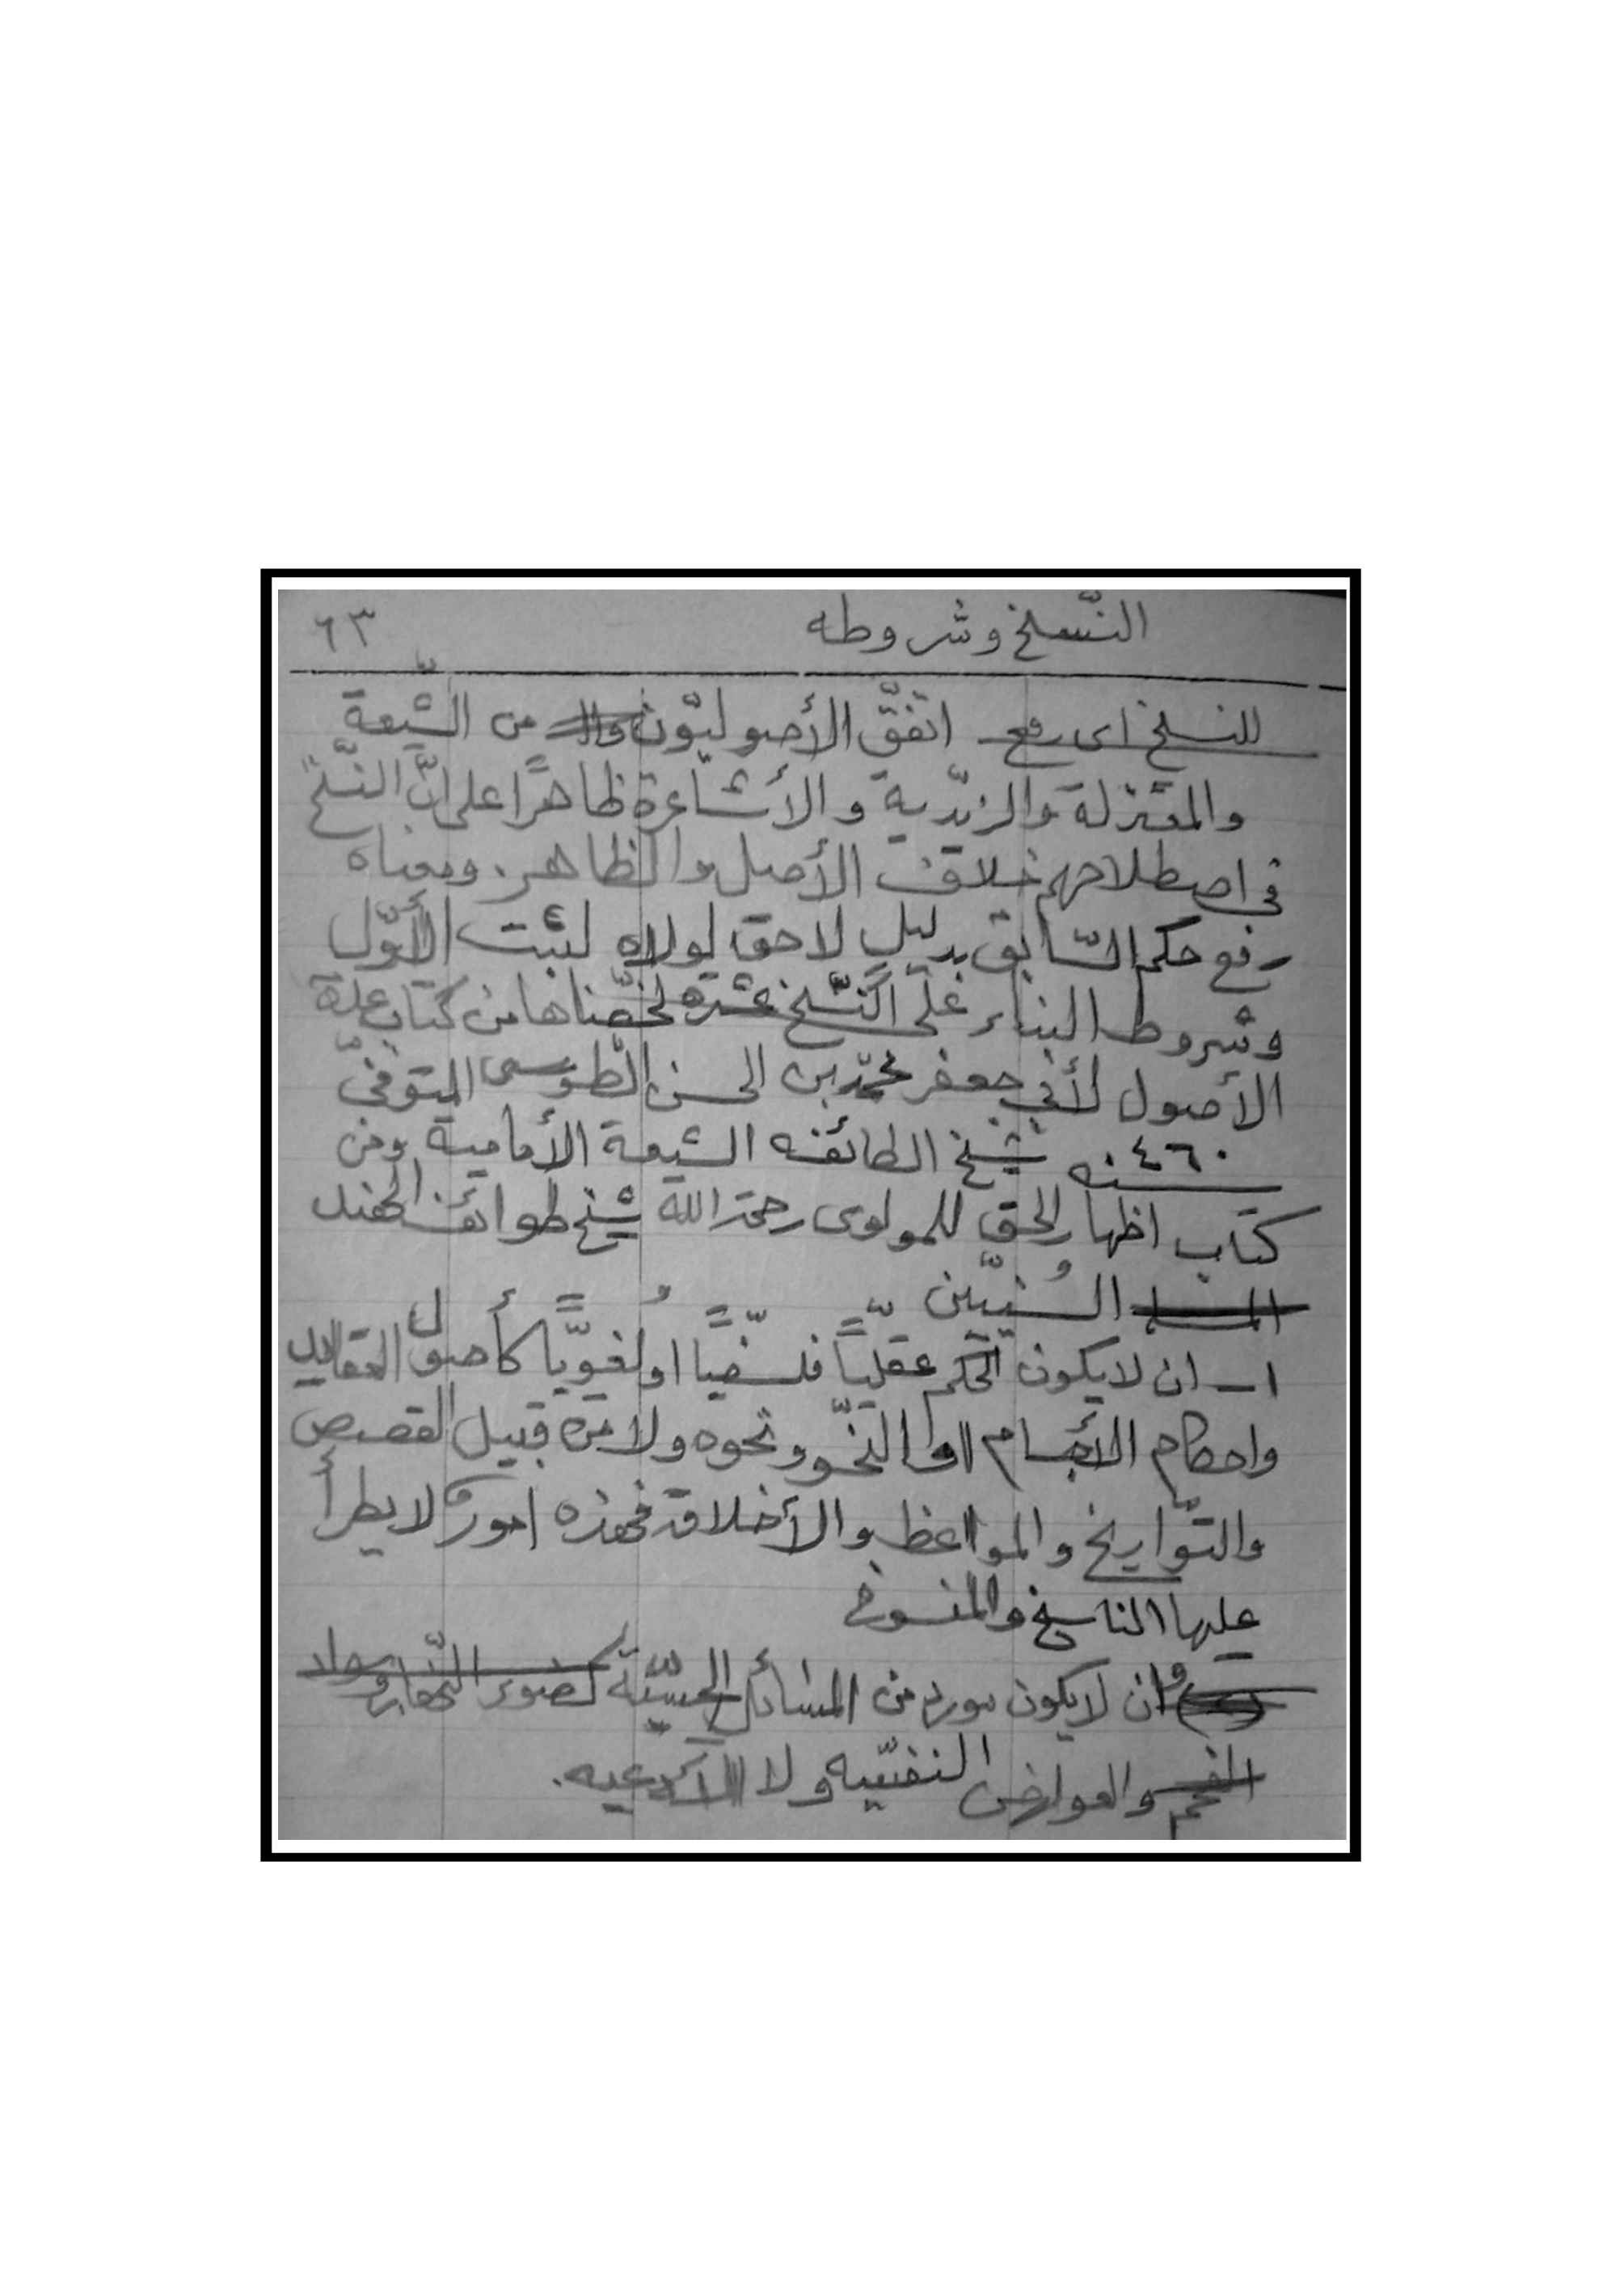 النّسخ وشروطه ٦٣
للنسخ اى رفع اتفقّ الأصوليّون وال من الشّيعة
والمعتزلة والزيّدية والأشاعرة ظاهرًا على انّ النّسخ
فى اصطلاحهم خلاف الأصل والظاهر. ومعناه
رفع حكم السّابق بدليل لاحق لولاه لثبت الأوّل
وشروط البناء على النّسخ عشرة لخّصناها من كتاب عدة
الأصول لأبى جعفر محمّد بن الحسن الطّوسى المتوفىّ
سنه ٤٦٠ شيخ الطائفه الشيعة الأمامية ومن
كتاب اظهار الحق للمولوى رحمة الله شيخ طوائف الهند
السُنيّين
١ــ ان لا يكون الحكم عقليّاً فلسفيّاً او لُغويّاً كأصول العقايد
واحكام الأجسام او النّحو ونحوه ولا من قبيل القصص
والتّواريخ والمواعظ والأخلاق فهذه امورٌ لا يطرأ
عليها الناسخ والمنسوخ
وان لا يكون مورده من المسائل الحسيّة كضوء النّهار وسواد
الفحم والعوارض النفسّيه ولا الأدعيه.